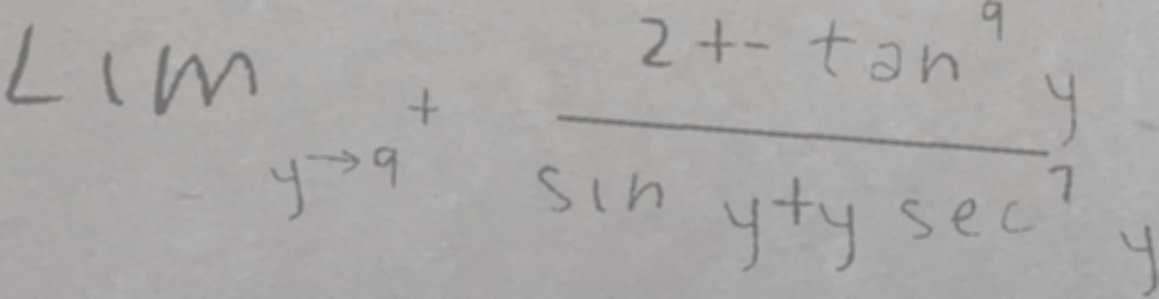 Lim_{y \to 9^+} \frac{2 + - \tan^9 y}{\sin y + y \sec^7 y}